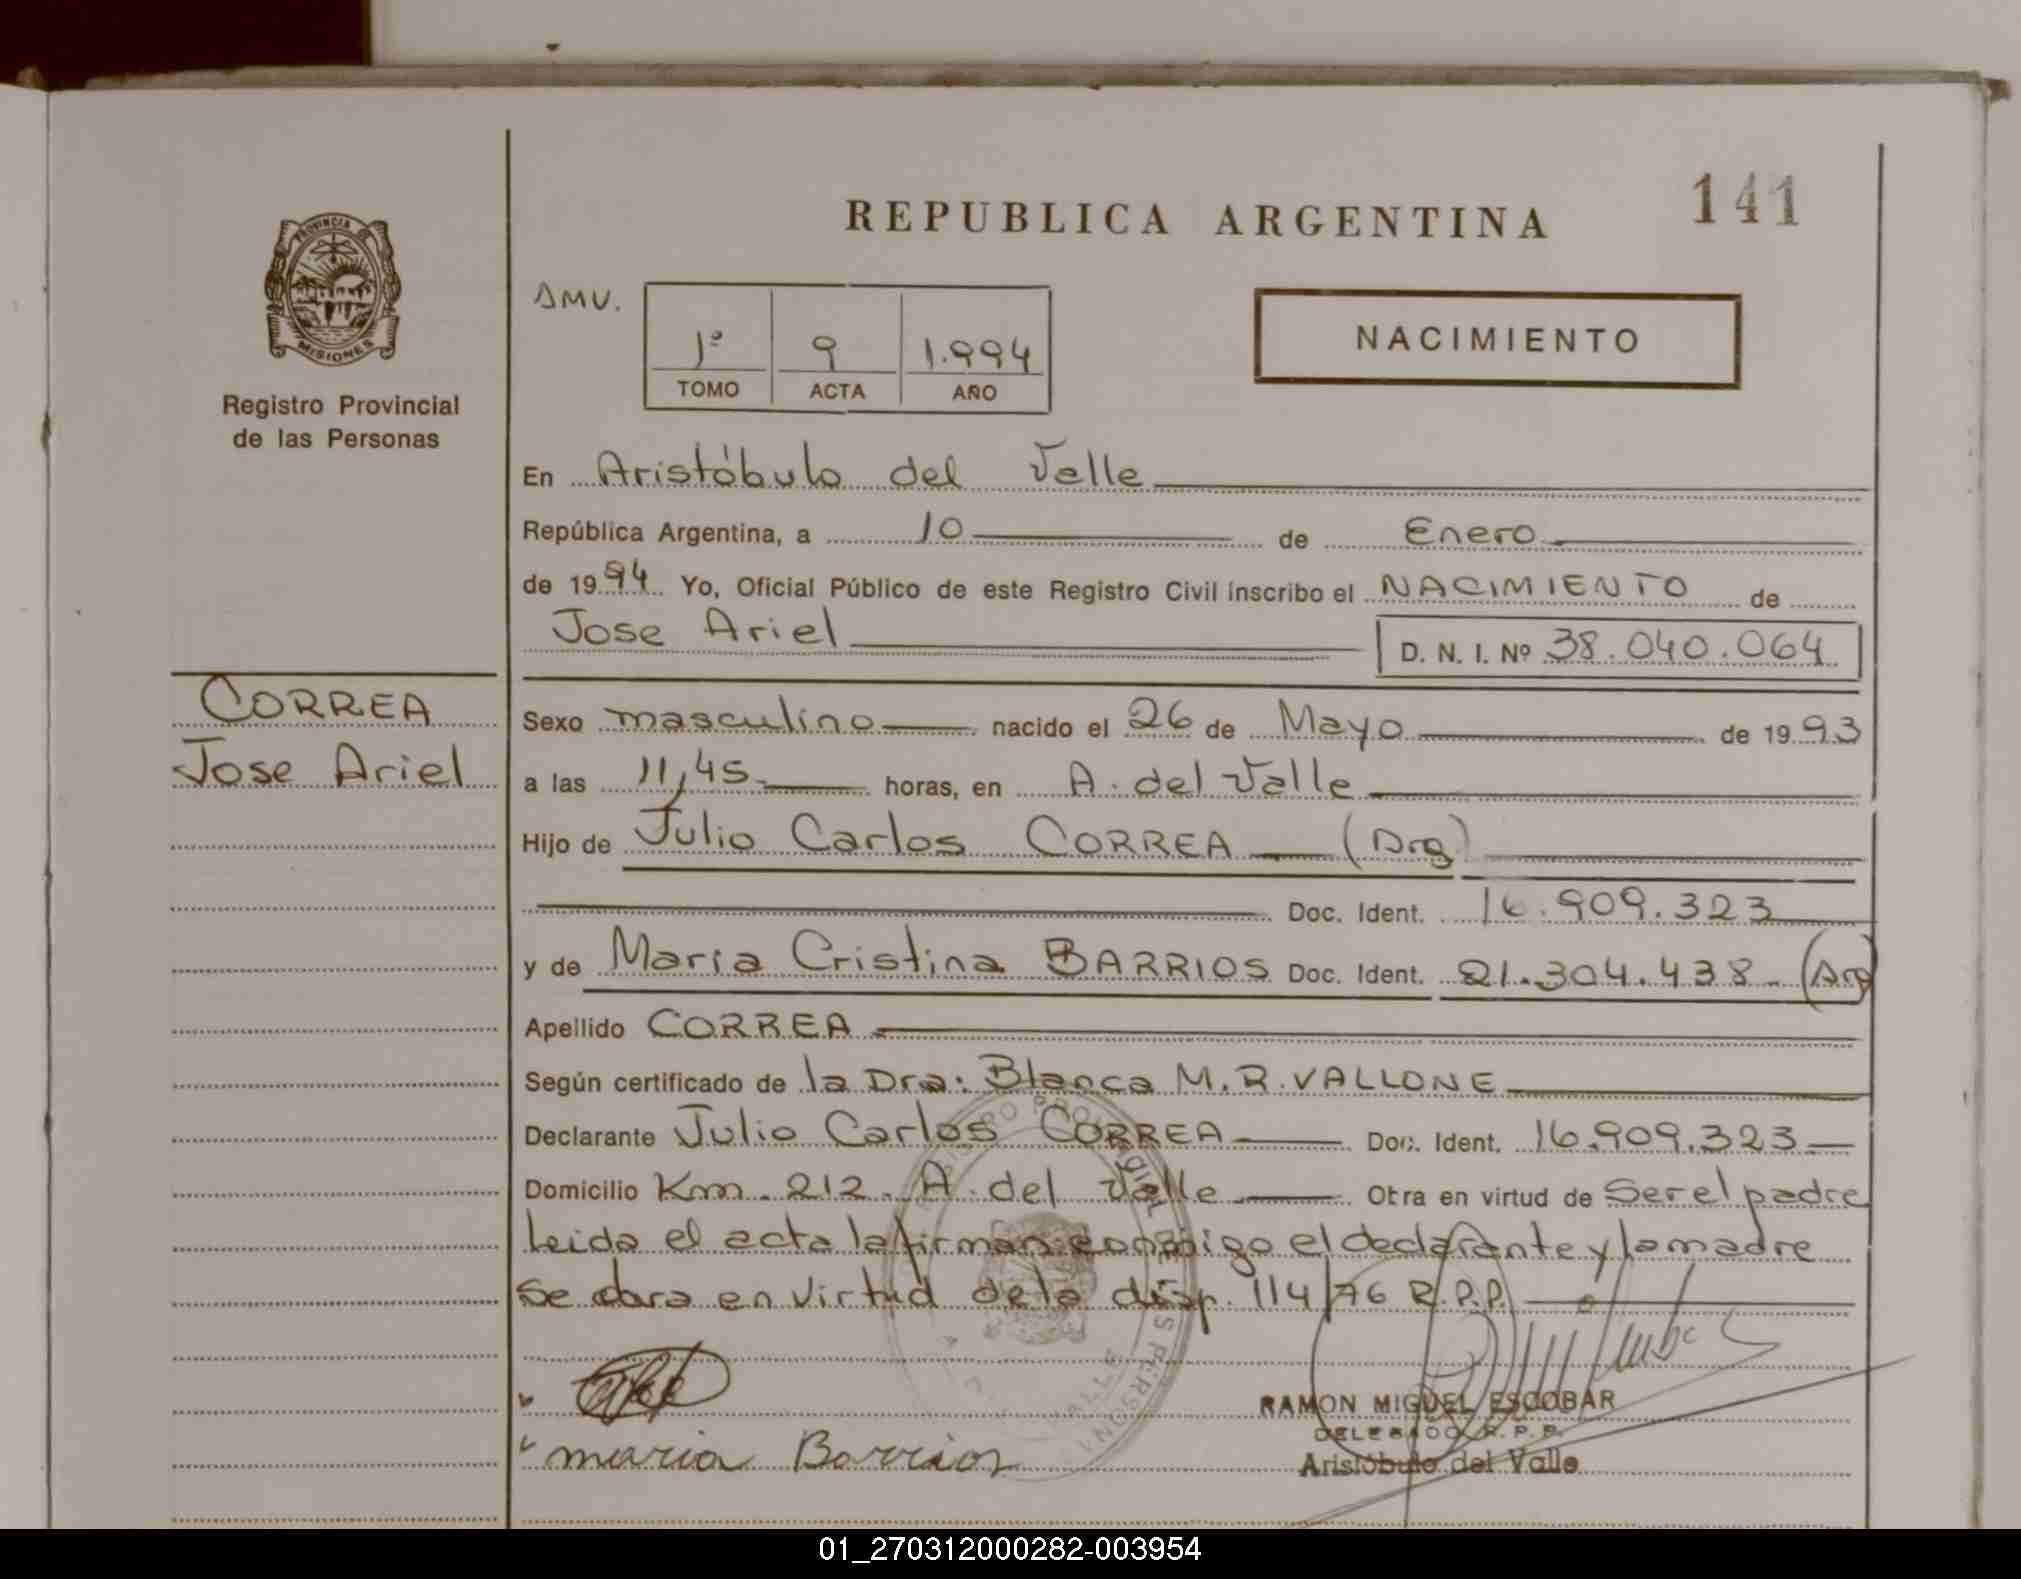 REPUBLICA ARGENTINA
141
PROVINCIA DE
MISIONES
Registro Provincial
de las Personas
AMV.
1º 9 1.994
TOMO ACTA AÑO
NACIMIENTO
En Aristóbulo del Valle
República Argentina, a 10 de Enero
de 1994 Yo, Oficial Público de este Registro Civil inscribo el NACIMIENTO de
Jose Ariel D. N. I. Nº 38.040.064
CORREA
Jose Ariel
Sexo masculino nacido el 26 de Mayo de 1993
a las 11,45 horas, en A. del Valle
Hijo de Julio Carlos CORREA (Arg)
Doc. Ident. 16.909.323
y de Maria Cristina BARRIOS Doc. Ident. 21.304.438 (Arg)
Apellido CORREA
Según certificado de la Dra: Blanca M.R. VALLONE
Declarante Julio Carlos CORREA Doc. Ident. 16.909.323
Domicilio Km. 212. A. del Valle Obra en virtud de Ser el padre
Leida el acta la firman conmigo el declarante y la madre
Se obra en virtud de la disp. 114/76 R.P.P.
maria Barrios
RAMON MIGUEL ESCOBAR
DELEGADO R.P.P.
Aristóbulo del Valle
01_270312000282-003954